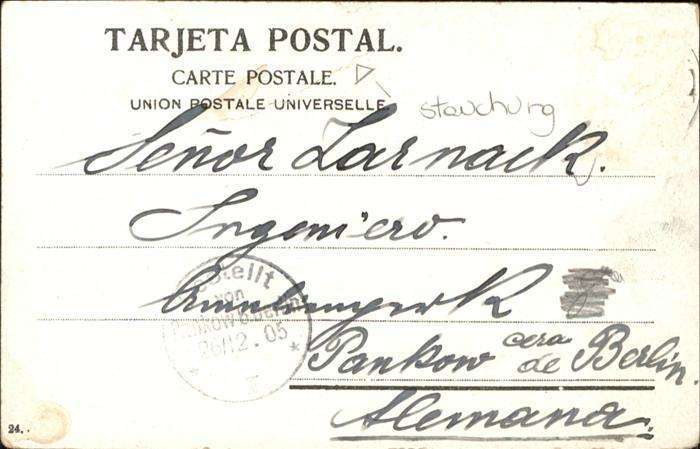 TARJETA POSTAL.
CARTE POSTALE.
UNION POSTALE UNIVERSELLE
stauchung
Señor Zarnack.
Ingeniero.
Pankow cera de Berlin.
Alemana.
stellt
von
26/12.05
* *
24.